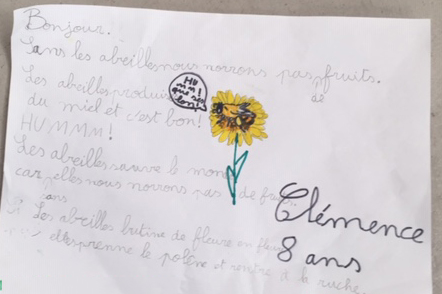 Bonjour.
Sans les abeilles nous norrons pas fruits.
de
Les abeilles produis
HU
mm!
que ses
bon!
du miel et c'est bon!
HUMMM!
Les abeilles sauve le mon
car elles nous norrons pas de fruits.
sans
Les abeilles butine de fleure en fleur
elles prenne le polène et rentre à la ruche.
Clémence
8 ans